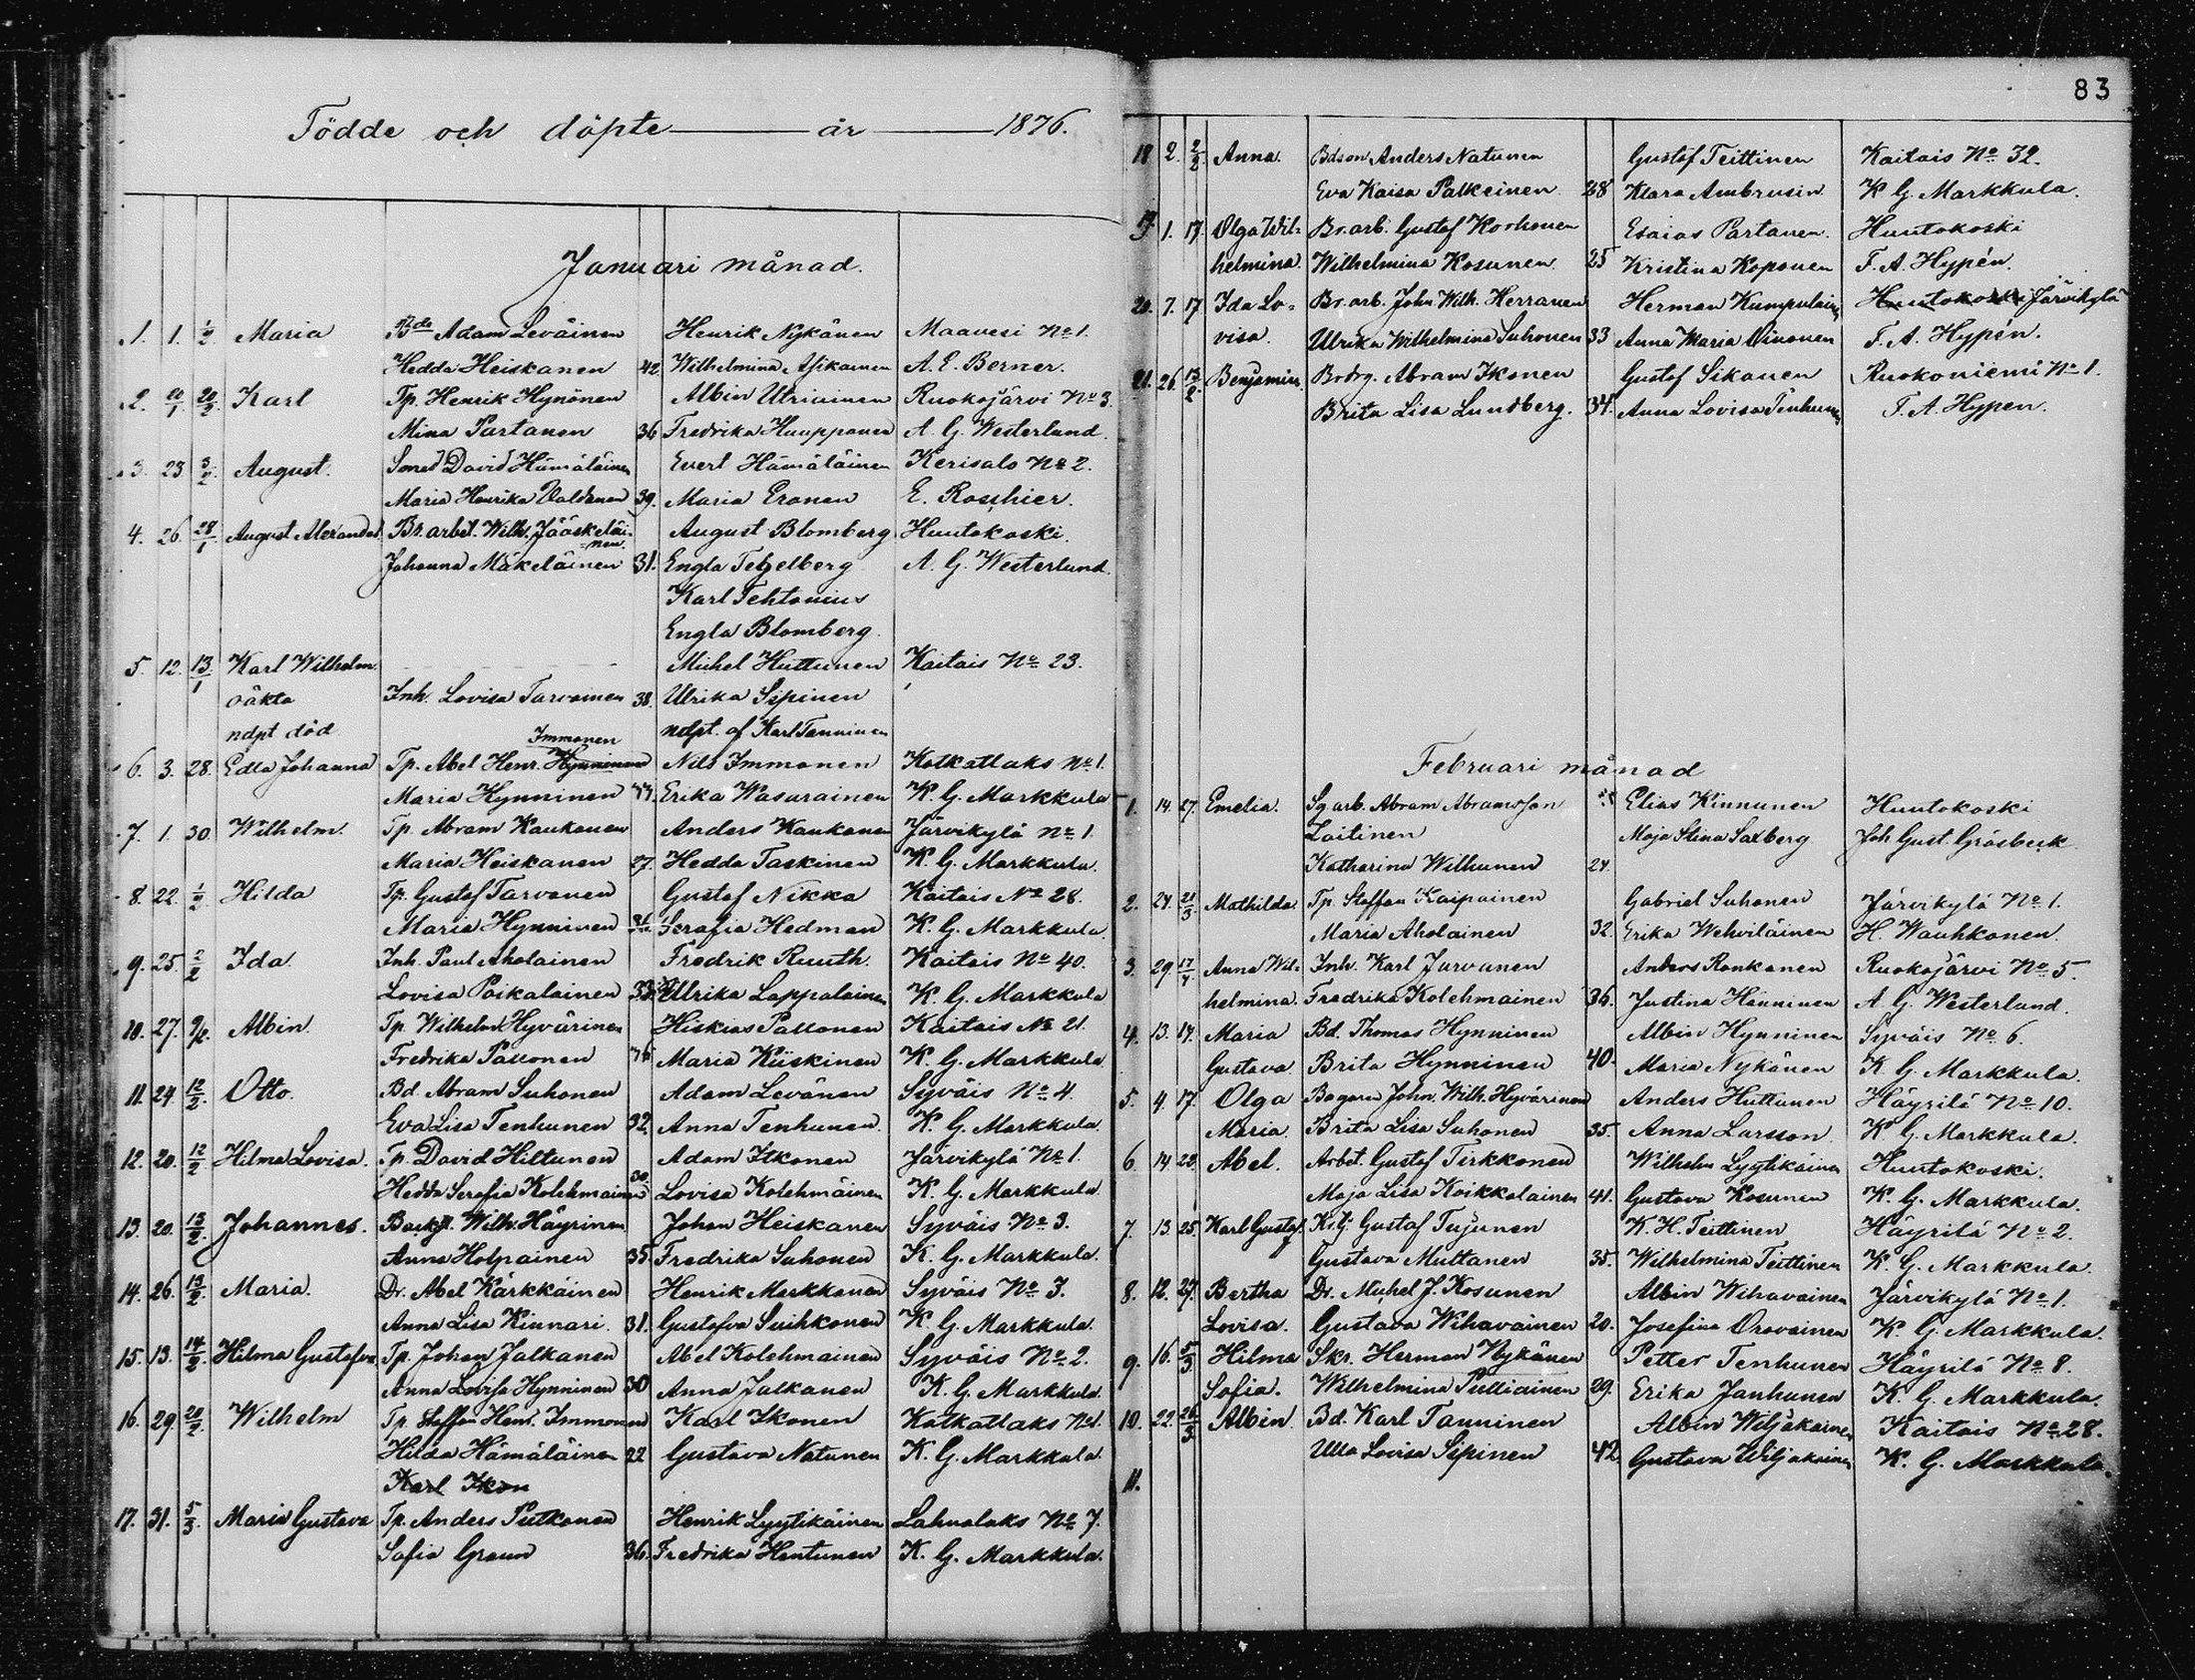 Födde och döpte — år — 1876.
Januari månad.
1. 1. 1/2 Maria Bde Adam Leväinen Henrik Nykänen Maavesi No 1.
Hedda Heiskanen 42. Wilhelmina Asikainen A. E. Berner.
2. 20/1. 20/3 Karl Tp. Henrik Hynönen Albin Utriainen Ruokojärvi No 3.
Mina Partanen 36 Fredrika Huupponen A. G. Westerlund.
3. 23 3/2 August. Smed David Hämäläinen Evert Hämäläinen Kerisalo No 2.
Maria Henrika 39. Maria Eronen E. Roschier.
4. 26. 28/1 August Alexander Br. arbet. Wilh. Jääskeläi- August Blomberg Huutokoski.
nen.
Johanna Mäkeläinen 31. Engla Tegelberg A. G. Westerlund.
Karl Tehtonius
Engla Blomberg
5. 12. 13/1 Karl Wilhelm. Michel Huttunen Kaitais No 23.
oäkta Inh. Lovisa Tarvainen 38. Ulrika Sipinen
ndpt död ndpt. af Karl Tanninen
Immonen
6. 3. 28. Edla Johanna Tp. Abel Henr. Hynninen Nils Immonen Kotkatlaks No 1.
Maria Hynninen 44. Erika Wasarainen K. G. Markkula
7. 1. 30 Wilhelm. Tp. Abram Kaukanen Anders Kaukanen Järvikylä No 1.
Maria Heiskanen 27. Hedda Taskinen K. G. Markkula.
8. 22. 1/2 Hilda Tp. Gustaf Tarvanen Gustaf Nikka Kaitais No 28.
Maria Hynninen 31. Serafia Hedman K. G. Markkula.
9. 25. 2/2 Ida. Inh. Paul Aholainen Fredrik Ruuth. Kaitais No 40.
Lovisa Poikalainen 33. Ulrika Lappalainen K. G. Markkula
10. 27. 9/2. Albin. Tp. Wilhelm Hyvärinen Hiskias Pallonen Kaitais No 21.
Fredrika Pallonen Maria Kiiskinen K. G. Markkula
11. 24. 12/2. Otto. Bd. Abram Suhonen Adam Levänen Syväis No 4.
Eva Lisa Tenhunen 32. Anna Tenhunen. K. G. Markkula.
12. 20. 12/2 Hilma Lovisa. Tp. David Hiltunen Adam Itkonen Järvikylä No 1.
Hedda Serafia Kolehmainen 30 Lovisa Kolehmäinen K. G. Markkula
13. 20. 13/2. Johannes. Backst. Wilh. Häyrinen Johan Heiskanen Syväis No 3.
Anna Holpainen 35. Fredrika Suhonen K. G. Markkula.
14. 26. 13/2 Maria. Dr. Abel Kärkkäinen Henrik Markkanen Syväis No 3.
Anna Lisa Kinnari. 31. Gustafva Suihkonen K. G. Markkula.
15. 13. 14/2 Hilma Gustafva Tp. Johan Jalkanen Abel Kolehmainen Syväis No 2.
Anna Lovisa Hynninen 30 Anna Jalkanen K. G. Markkula.
16. 29. 20/2 Wilhelm Tp. Staffan Henr. Immonen Karl Ikonen Kotkatlaks No 1.
Hilda Hämäläinen 22 Gustava Natunen K. G. Markkula.
Karl Ikon
17. 31. 5/3. Maria Gustava Tp. Anders Putkonen Henrik Lyytikäinen Lahnalaks No 7.
Sofia Graun 36. Fredrika Hentunen K. G. Markkula.
83
18 2. 2/2 Anna. Bdson Anders Natunen Gustaf Teittinen Kaitais No 32.
Eva Kaisa Palkeinen 28 Klara Ambrusin K. G. Markkula.
19. 1. 17. Olga Wil- Br. arb. Gustaf Korhonen Esaias Partanen. Huutokoski
helmina. Wilhelmina Kosunen. 25 Kristina Koponen F. A. Hypén.
20. 7. 17 Ida Lo- Br. arb. John Wilh. Herranen Herman Kumpulainen Huutokoski Järvikylä
visa. Ulrika Wilhelmina Suhonen 33 Anna Maria Oinonen F. A. Hypén.
21. 26. 13/2. Benjamin Brdrg. Abram Ikonen Gustaf Sikanen Ruokoniemi No 1.
Brita Lisa Lundberg. 34. Anna Lovisa Tenhunen F. A. Hypen.
Februari månad
1. 14. 27. Emelia. Sg arb. Abram Abramsson Elias Kinnunen Huutokoski
Laitinen Maja Stina Saxberg Joh Gust. Gråsbeck
Katharina Wilhunen 24.
2. 24. 21/3 Mathilda. Tp. Staffan Kaipainen Gabriel Suhonen Järvikylä No 1.
Maria Aholainen 32. Erika Wehviläinen H. Wauhkonen.
3. 29. 17/4 Anna Wil- Inh. Karl Jarvanen Anders Ronkanen Ruokojärvi No 5.
helmina. Fredrika Kolehmainen 36. Justina Hänninen A. G. Westerlund.
4. 13. 14. Maria Bd. Thomas Hynninen Albin Hynninen Syväis No 6.
Gustava. Brita Hynninen 40. Maria Nykänen K. G. Markkula.
5. 4. 17. Olga Bagarn John. Wilh. Hyvärinen Anders Huttunen Häyrilä No 10.
Maria. Brita Lisa Suhonen 35. Anna Larsson. K. G. Markkula.
6. 14 23. Abel. Arbet. Gustaf Tirkkonen Wilhelm Lyytikäinen Huutokoski.
Maja Lisa Koikkalainen 41. Gustava Kosunen K. G. Markkula.
7. 13. 25. Karl Gustaf. Gustaf Tujunen K. H. Teittinen Häyrilä No 2.
Gustava Muttanen 35. Wilhelmina Teittinen K. G. Markkula.
8. 12. 27. Bertha Dr. Michel J. Kosunen Albin Wihavainen Järvikylä No 1.
Lovisa. Gustava Wihavainen 20. Josefina Oravainen K. G. Markkula.
9. 16. 5/3 Hilma Skr. Herman Nykänen Petter Tenhunen Häyrilä No 8.
Sofia. Wilhelmina Pulliainen 29. Erika Janhunen K. G. Markkula.
10. 22. 26/3 Albin. Bd. Karl Tanninen Albin Wiljakainen Kaitais No 28.
Ulla Lovisa Sipinen 42. Gustava Wiljakainen K. G. Markkula.
11.